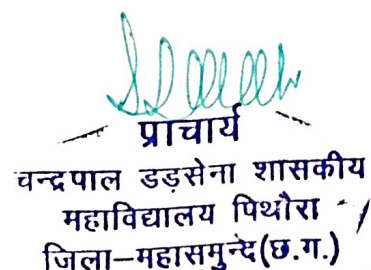 प्राचार्य
चन्द्रपाल डड़सेना शासकीय
महाविद्यालय पिथौरा
जिला–महासमुन्दे(छ.ग.)